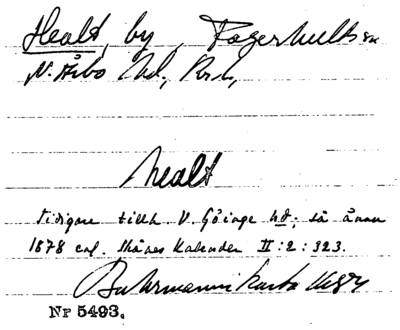 Healt, by, Fagerhult sn
N. Åsbo hd, Krl,
healt
Tidigare tillh. V. Göinge hd; så ännu
1878 enl. Skånes Kalender II:2:323.
Buhrmanns karta 1684
Nr 5493.